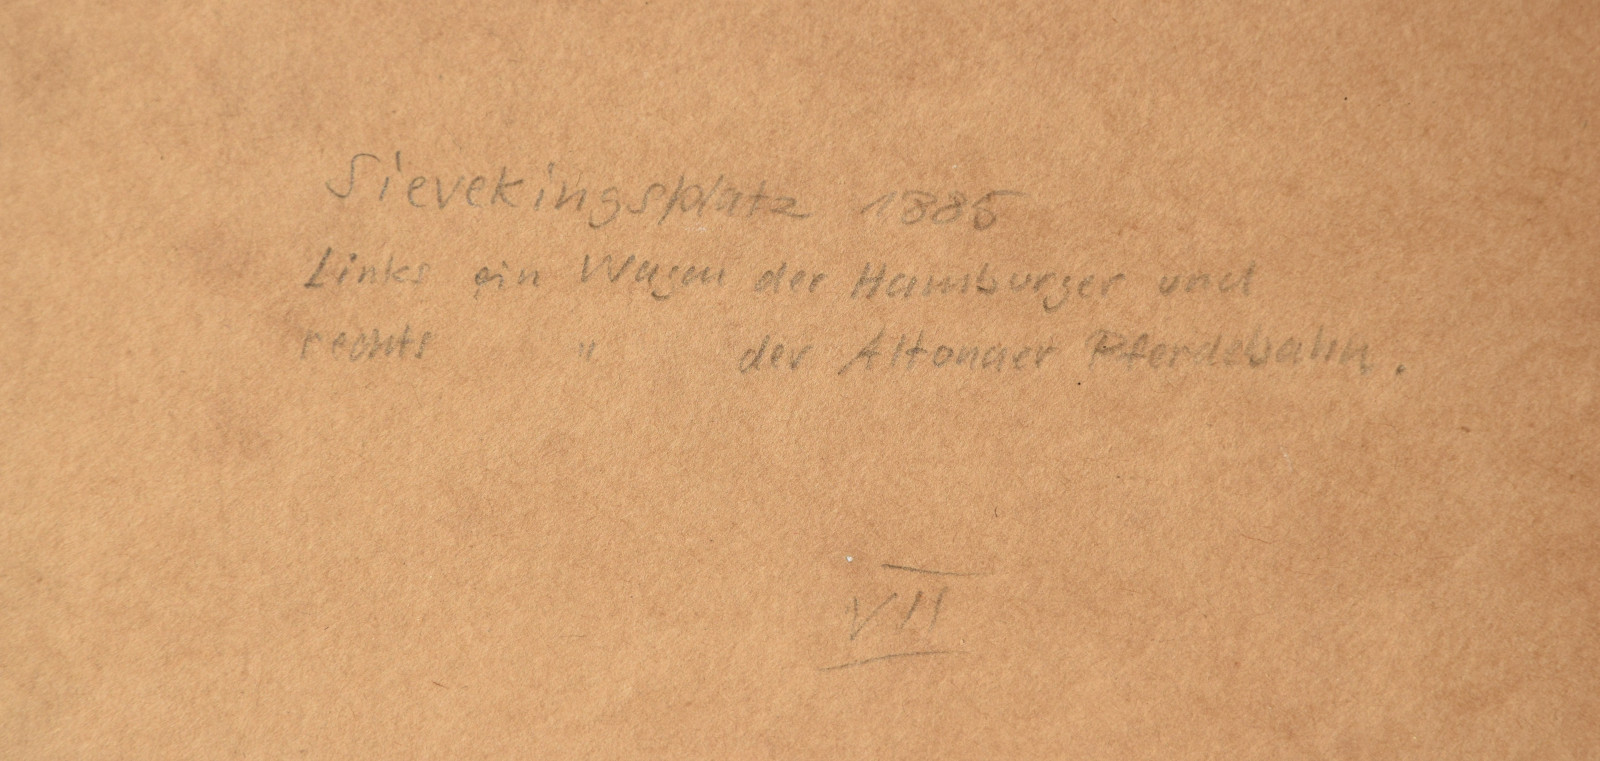 Sievekingsplatz 1885
Links ein Wagen der Hamburger und
rechts " der Altonaer Pferdebahn.
VII